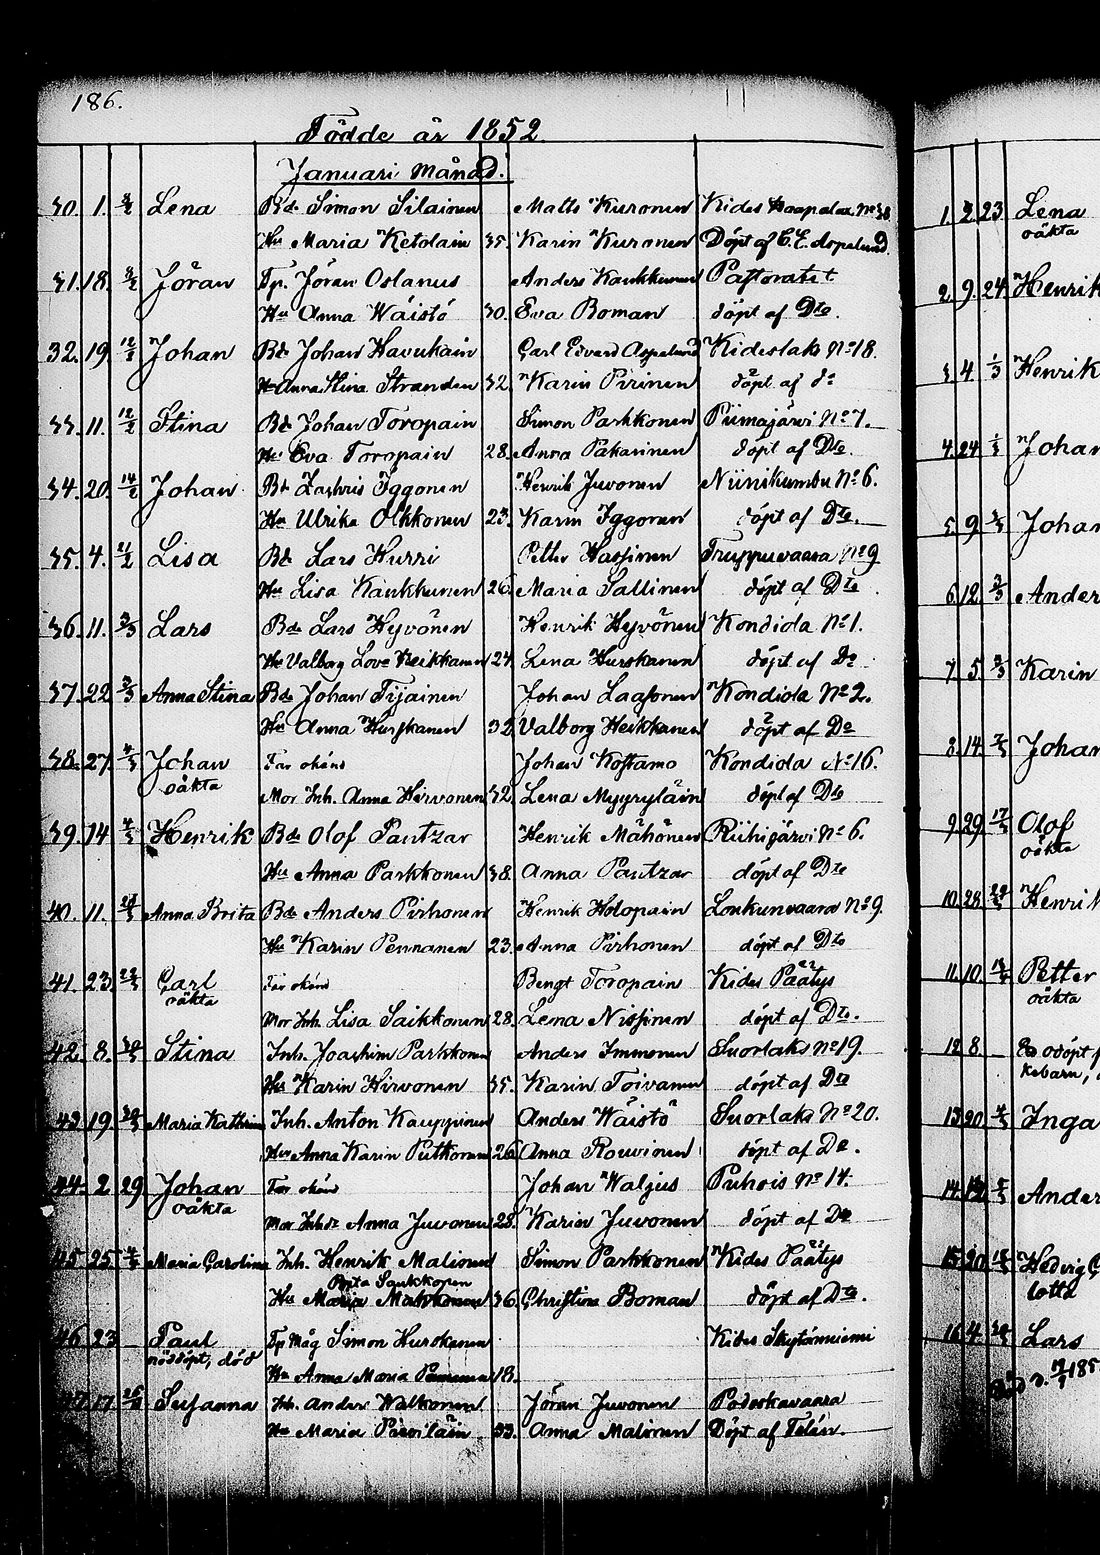 186.
Födde år 1852.
Januari månad.
30. 1. 8/2 Lena Bd. Simon Silainen Matts Kuronen Kides Haapalax No 38
Hu Maria Ketolain 35. Karin Kuronen Döpt af C. E. Aspelund
31. 18. 8/2 Jöran Tp. Jöran Oslanus Anders Kaukkunen Pastoratet
Hu Anna Wäistö 30. Eva Boman döpt af Dto
32. 19. 12/2 Johan Bd. Johan Havukain Carl Edvard Aspelund Kideslaks No 18.
Hu Anna Stina Stranden 32. Karin Pirinen döpt af do
33. 11. 12/2 Stina Bd. Johan Toropain Simon Parkkonen Piimäjärvi No 7.
Hu Eva Toropain 28. Anna Pakarinen döpt af Dto.
34. 20. 14/2 Johan Bd Zachris Iggonen Henrik Juvonen Niinikumbu No 6.
Hu Ulrika Olkkonen 23. Karin Iggonen döpt af Dto.
35. 4. 21/2 Lisa Bd. Lars Hurri Petter Hassinen Truppuvaara No 9
Hu Lisa Kaukkunen 26. Maria Sallinen döpt af Dto
36. 11. 3/3 Lars Bde Lars Hyvönen Henrik Hyvönen Kondiola No 1.
Hu Valborg Lova Heikkanen 24. Lena Hurskanen döpt af Do
37. 22. 3/3 Anna Stina Bde Johan Tijainen Johan Laasonen Kondiola No 2.
Hu Anna Hurskanen 32 Valborg Heikkanen döpt af Do
38. 27. 4/3 Johan Far okänd Johan Kostamo Kondiola No 16.
oäkta
Mor Inh. Anna Hirvonen 32. Lena Myyryläin döpt af Dto
39. 14. 4/3 Henrik Bde Olof Pautzar Henrik Mähönen Riihijärvi No 6.
Hu Anna Parkkonen 38. Anna Pautzar döpt af Dto
40. 11. Anna Brita Bde Anders Pirhonen Henrik Holopain Loukunvaara No 9.
Hu Karin Pennanen 23. Anna Pirhonen döpt af Dto
41. 23. Carl Far okänd Bengt Toropain Kides Päätys
oäkta
Mor Inh. Lisa Saikkonen 28. Lena Nissinen döpt af Dto.
42. 8. Stina Inh. Joachim Parkkonen Anders Immonen Suorlaks No 19.
Hu Karin Hirvonen 35. Karin Toivanen döpt af Dto
43. 19. Maria Kathrin Inh. Anton Kauppinen Anders Wäistö Suorlaks No 20.
Hu Anna Karin Putkonen 26. Anna Rouvinen döpt af Do.
44. 2 29 Johan Far okänd Johan Waljus Puhois No 14.
oäkta
Mor Inhs Anna Juvonen 28. Karin Juvonen döpt af Do
45 25 Maria Carolina Inh. Henrik Malinen Simon Parkkonen Kides Päätys
Brita Saukkonen
Hu Maria Makkonen 36. Christina Boman döpt af Dto.
46. 23 Paul Tp Måg Simon Hurskanen Kides Skytänniemi
nöddöpt, död
Hu Anna Maria 18.
47. 17. Susanna Inh. Anders Walkonen Jöran Juvonen Potoskavaara
Hu Maria 33. Anna Malinen Döpt af Telén.
1. 2 23 Lena
oäkta
2. 9. 24 Henrik
3. 4 1/3 Henrik
4. 24 1/3 Johan
5. 9 Johan
6. 12 3/3 Ander
7. 5 Karin
8. 14 Johan
9. 29 Olof
oäkta
10. 28 Henrik
11. 10. Petter
oäkta
12. 8. odöpt
13. 20. Inga
14. Ander
15. 20 Hedvig C
lotta
16. 4 Lars
185